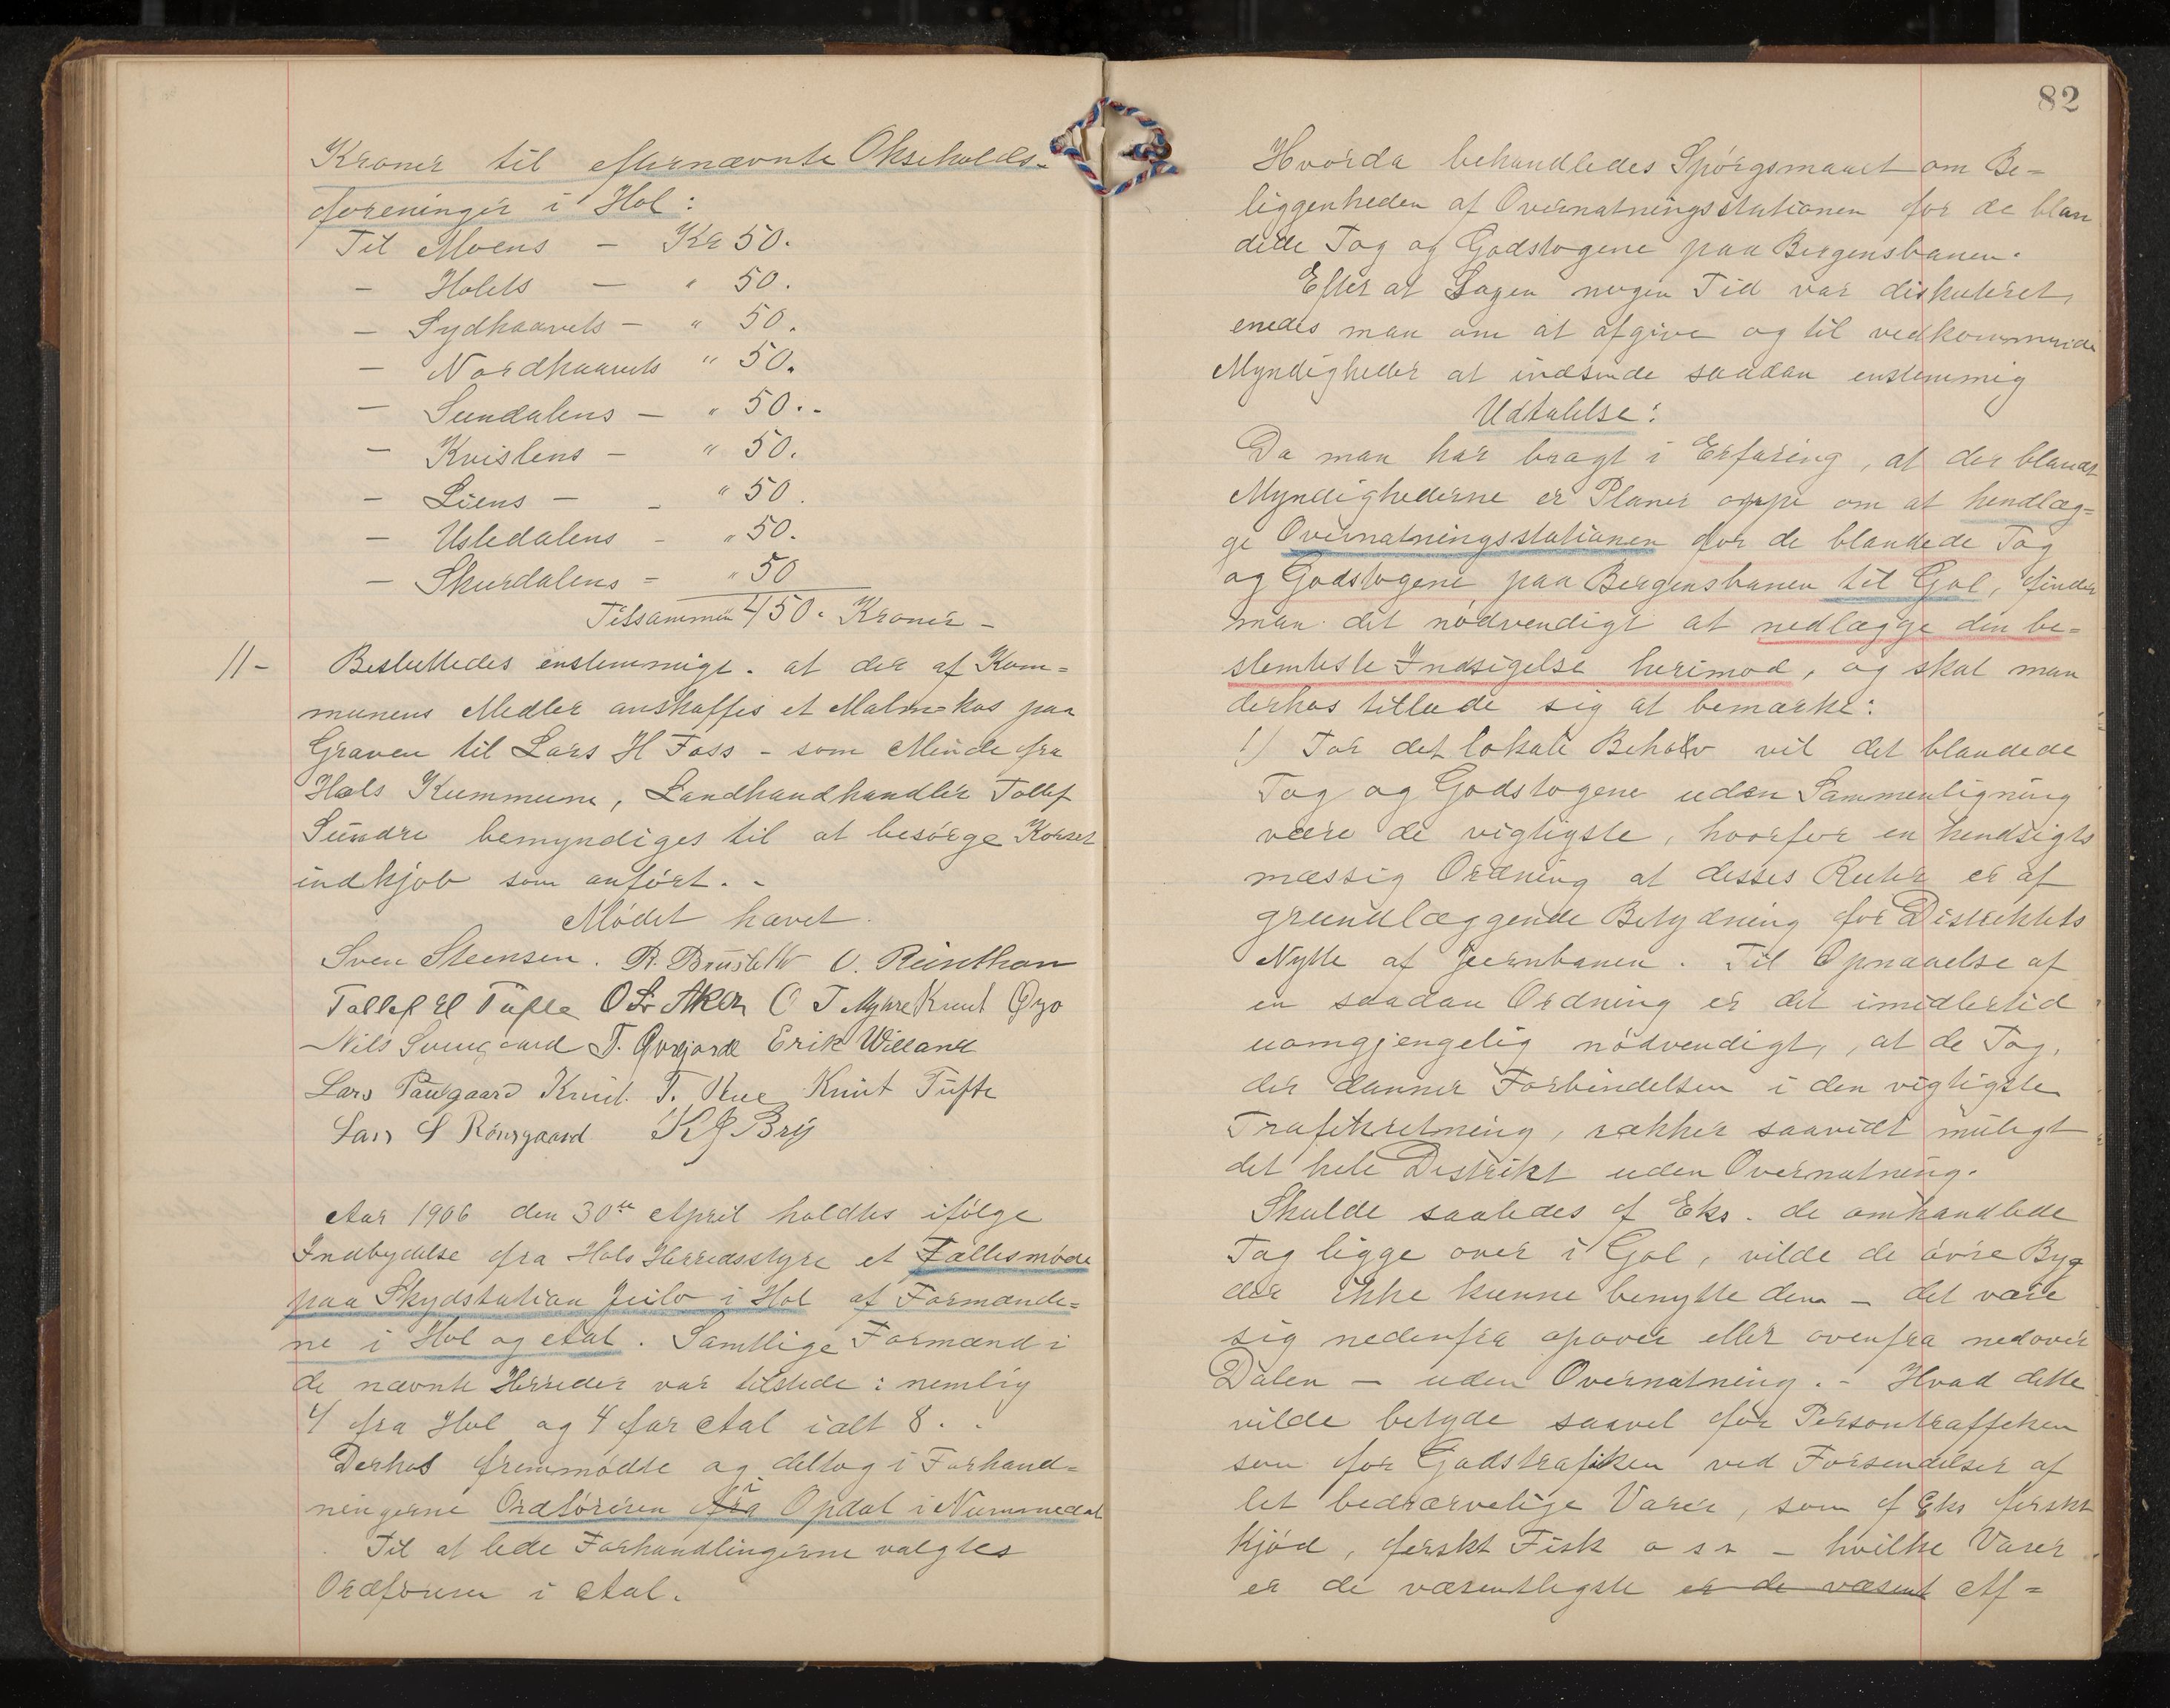 Kroner til efternævnte Okseholds-
foreninger i Hol:
Til Moens – Kr 50.
– Holets – " 50.
– Sydhaavets – " 50.
– Nordhaavets " 50.
– Sundalens – " 50.-
– Kvislens – " 50.
– Liens – - " 50.
– Ustedalens - " 50.
– Skurdalens – " 50
Tilsammen 450. Kroner –
11- Besluttedes enstemmigt. at der af Kom=
munens Medler anskaffes et Malm-kos paa
Graven til Lars H Foss - som Minde fra
Hols Kummune, Landhandhandler Tollef
Sundre bemyndiges til at besørge Korset
indkjøb som anført. -
Mødet hævet.
Sven Steensen. O. Reinthon
Tollef El Tufte O. T Myhre Knut
Nils Svengaard T. Erik Willand
Lars Paulgaard Knud. T. Rue Knut Tufte
Lars S
Aar 1906 den 30te April holdtes ifølge
Indbydelse fra Hols Herredsstyre et Fællesmøde
paa Skydstation Jeilo i Hol af Formænde=
ne i Hol og Aal. Samtlige Formænd i
de nævnte Herreder var tilstede: nemlig
4 fra Hol og 4 far Aal ialt 8. .
Derhos fremmødte og deltog i Forhand=
ningerne Ordføreren fra i Opdal i Nummedal
Til at lede Forhandlingerne valgtes
Ordføreren i Aal.
82
Hvorda behandledes Spørgsmaaet om Be=
liggenheden af Overnatningsstationen for de blan
dede Tog og Godstogene paa Bergensbanen.
Efter at Sagen nogen Tid var diskuteret,
enedes man om at afgive og til vedkommende
Myndigheder at indsende saadan enstemmig
Udtalelse:
Da man har bragt i Erfaring, at der blandt
Myndighederne er Planer oppe om at hendlæg=
ge Overnatningsstationen for de blandede Tog
og Godstogene paa Bergensbanen til Gol, finder
man det nødvendigt at nedlægge den be=
stemteste Indsigelse herimod, og skal man
derhos tillade sig at bemærke:
1) For det lokale Behov vil det blandede
Tog og Godstogene uden Sammenligning
være de vigtigste, hvorfor en hendsigts
mæssig Ordning at disses Ruter er af
grundlæggende Betydning for Distriktets
Nytte af Jernbanen. Til Opnaaelse af
en saadan Ordning er det imidlertid
uomgjengelig nødvendigt, at de Tog,
der danner Forbindelsen i den vigtigste
Trafikretning, rækker saavidt muligt
det hele Distrikt uden Overnatning.
Skulde saaledes f Eks. de omhandlede
Tog ligge over i Gol, vilde de øvre Byg
der ikke kunne benytte dem – det være
sig nedenfra opover eller ovenfra nedover
Dalen – uden Overnatning. - Hvad dette
vilde betyde saavel for Persontraffiken
som for Godstrafiken ved Forsendelser af
let bedrærvelige Varer, som f Eks ferskt
Kjød, ferskt Fisk o s v – hvilke Varer
er de væsentligste er de væsent Af=